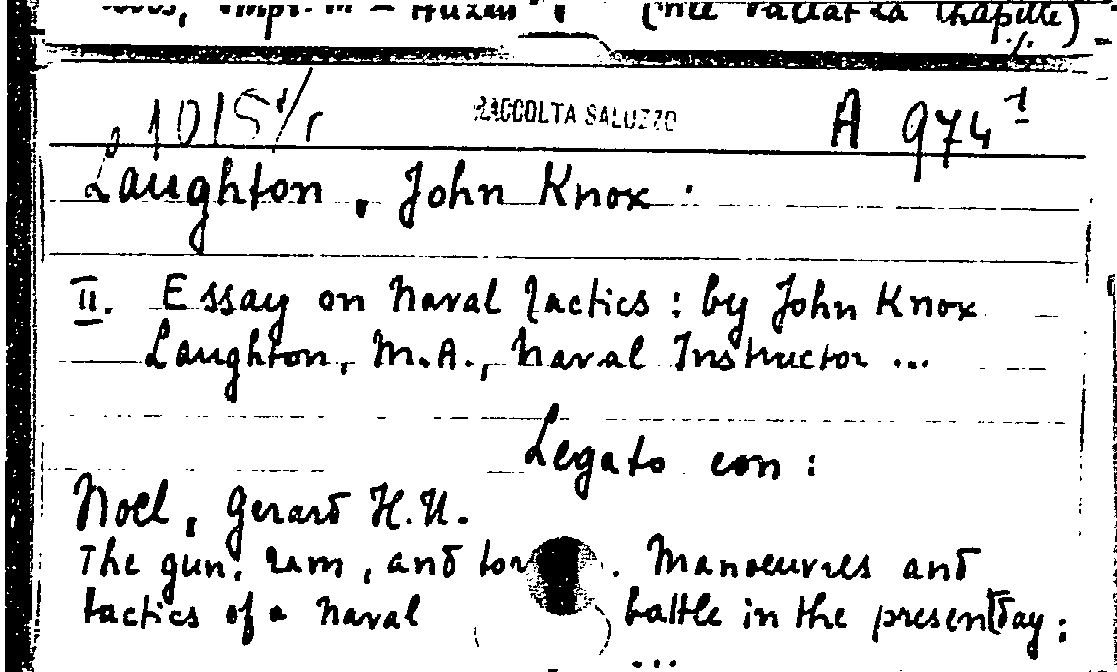 (
10151/r RACCOLTA SALUZZO A 974 1
Laughton, John Knox:
II. Essay on Naval Tactics: by John Knox
Laughton, M.A., Naval Instructor ...
Legato con:
Noel, Gerard H.U.
The gun, ram, and . Manoeuvres and
tactics of a Naval battle in the present day:
...